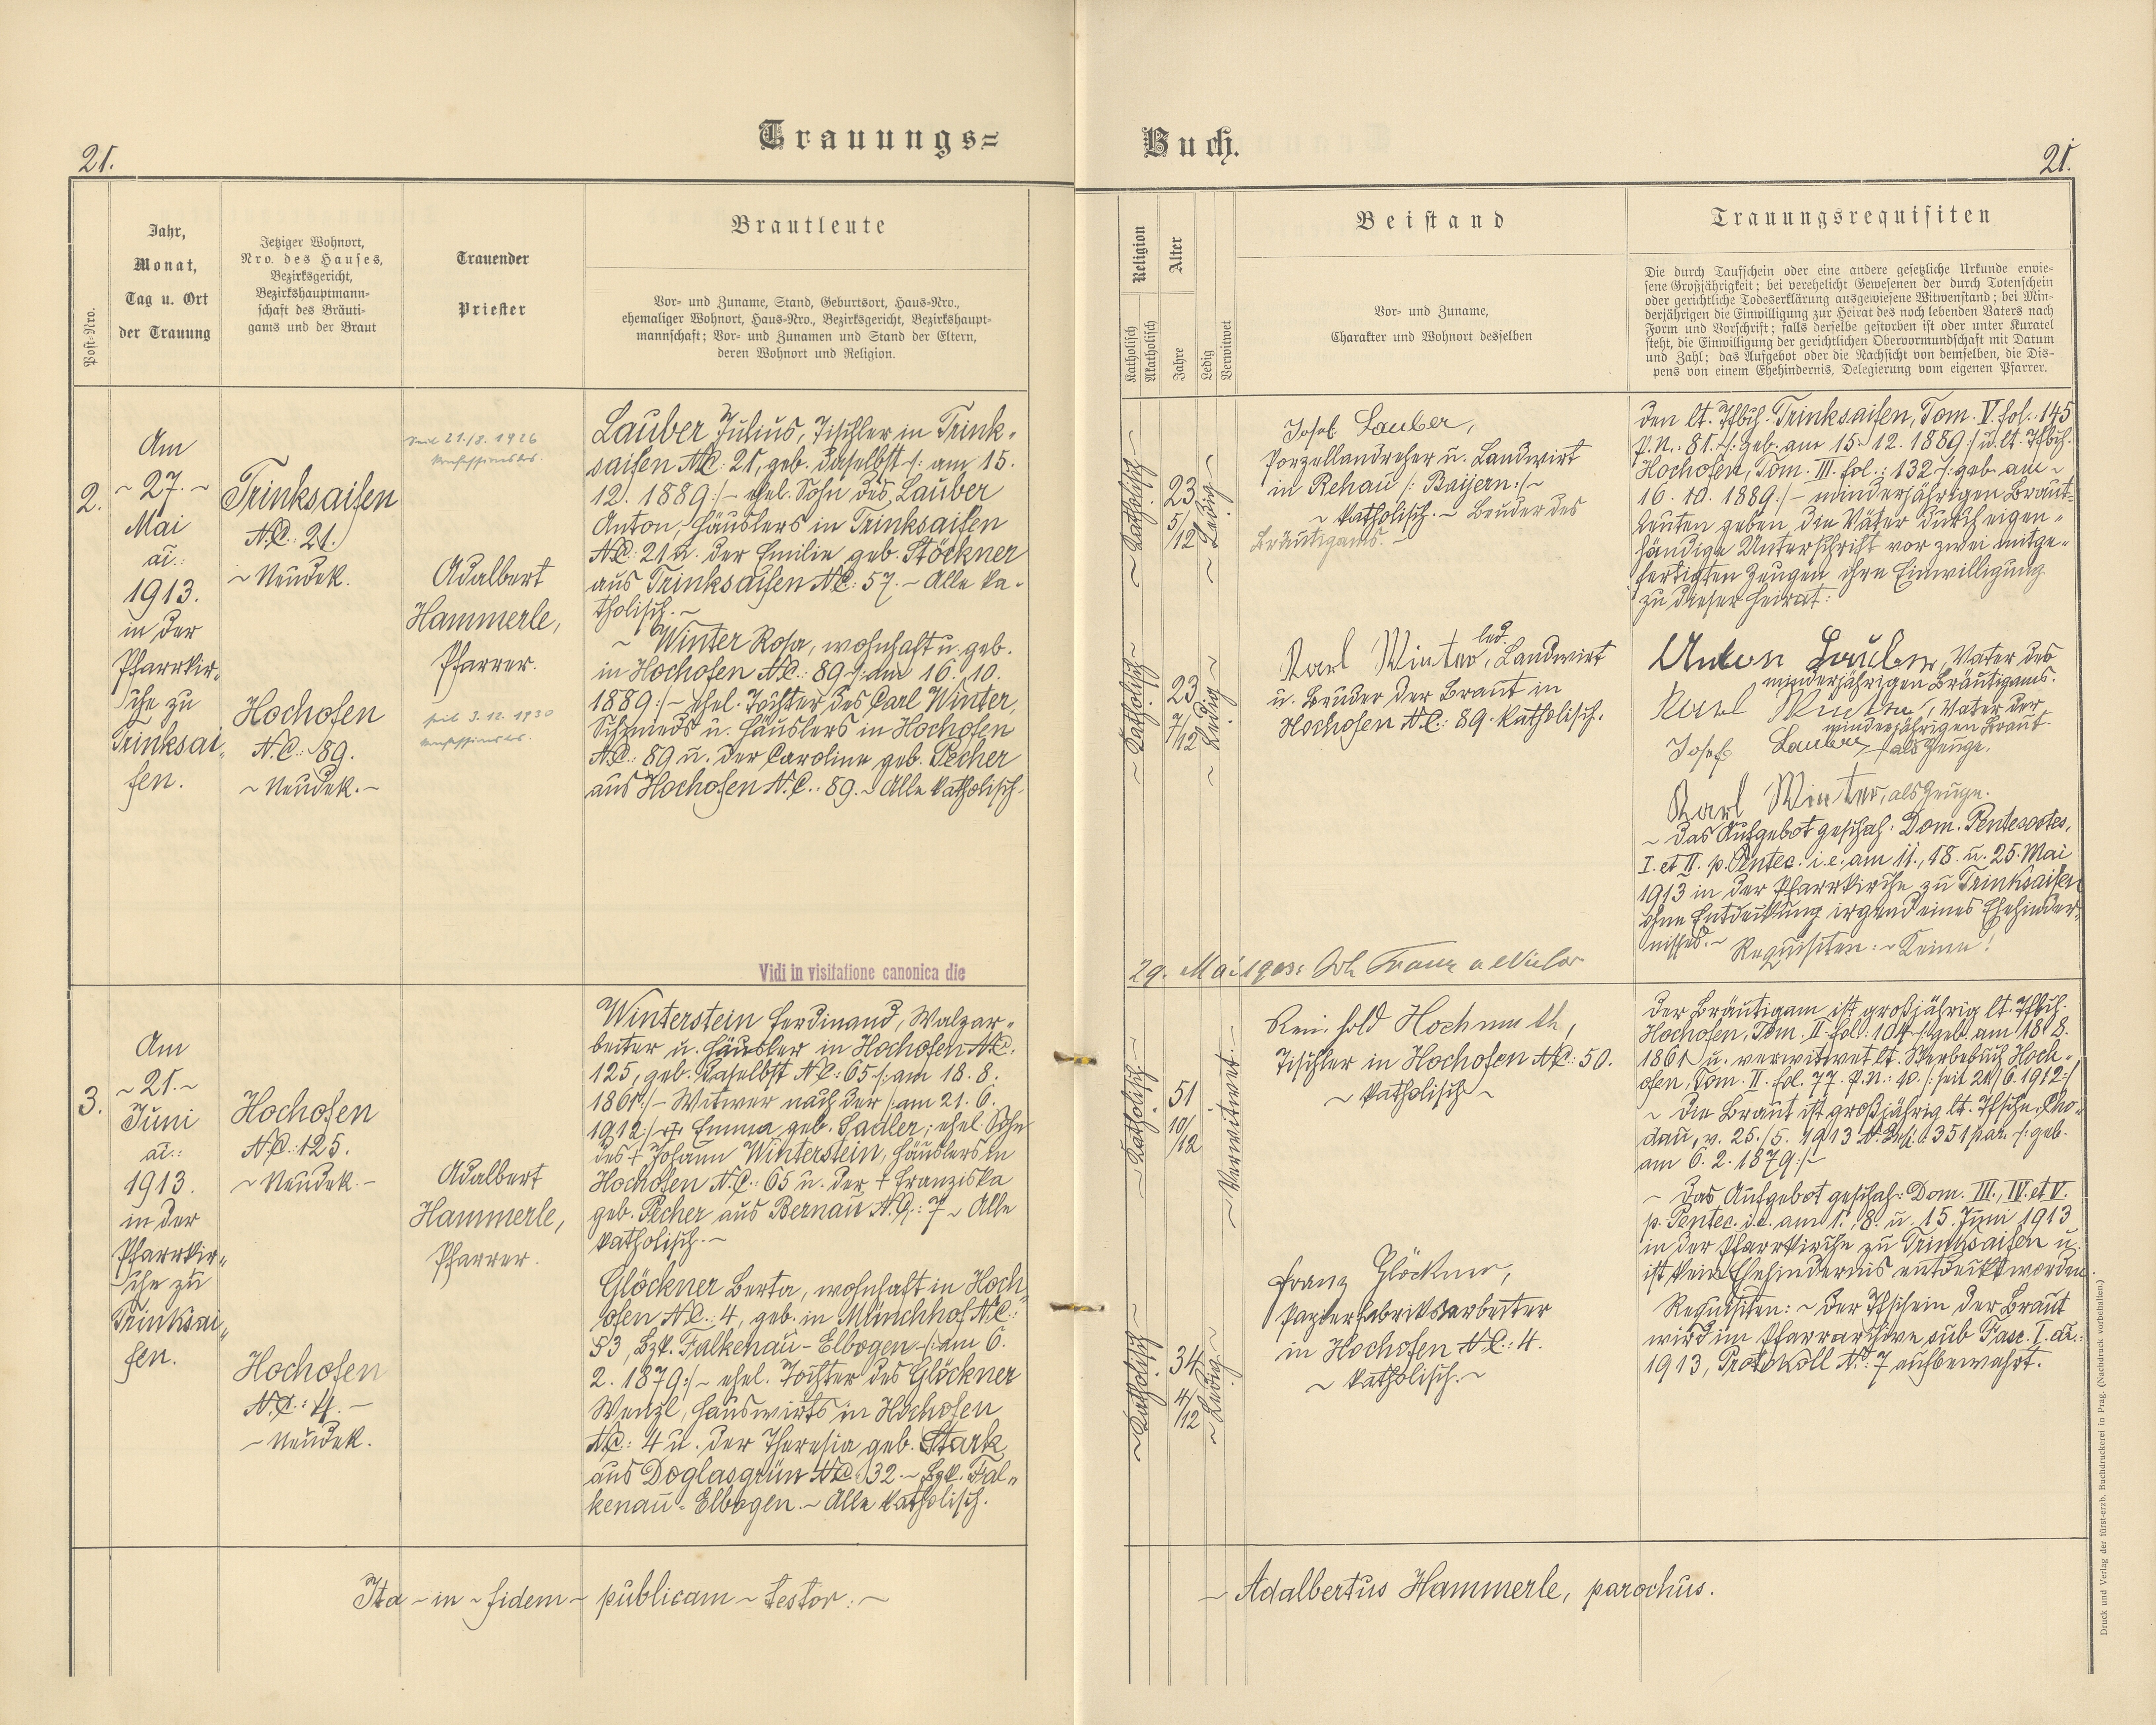 Trauungs=
Buch.
21.
21.
Post=Nro.
Jahr,
Monat,
Tag u. Ort
der Trauung
Jetziger Wohnort,
Nro. des Hauses,
Bezirksgericht,
Bezirkshauptmann=
schaft des Bräuti=
gams und der Braut
Trauender
Priester
Brautleute
Vor= und Zuname, Stand, Geburtsort, Haus=Nro.,
ehemaliger Wohnort, Haus=Nro., Bezirksgericht, Bezirkshaupt=
mannschaft; Vor= und Zunamen und Stand der Eltern,
deren Wohnort und Religion.
Religion
Katholisch
Akatholisch
Alter
Jahre
Ledig
Verwitwet
Beistand
Vor= und Zuname,
Charakter und Wohnort desselben
Trauungsrequisiten
Die durch Taufschein oder eine andere gesetzliche Urkunde erwie=
sene Großjährigkeit; bei verehelicht Gewesenen der durch Totenschein
oder gerichtliche Todeserklärung ausgewiesene Witwenstand; bei Min=
derjährigen die Einwilligung zur Heirat des noch lebenden Vaters nach
Form und Vorschrift; falls derselbe gestorben ist oder unter Kuratel
steht, die Einwilligung der gerichtlichen Obervormundschaft mit Datum
und Zahl; das Aufgebot oder die Nachsicht von demselben, die Dis=
pens von einem Ehehindernis, Delegierung vom eigenen Pfarrer.
2.
Am
~ 27. ~
Mai
ai.:
1913.
in der
Pfarrkir„
che zu
Trinksai„
fen.
Trinksaifen
N.C.: 21.
~ Neudek.
Hochofen
N.C.: 89.
~ Neudek. ~
seit 21./8. 1926
konfessionslos.
Adalbert
Hammerle,
Pfarrer.
seit 3.12. 1930
konfessionslos.
Lauber Julius, Tischler in Trink„
saifen N.C.: 21, geb. daselbst /: am 15.
12. 1889 :/ ~ ehel. Sohn des Lauber
Anton, Häuslers in Trinksaifen
N.C.: 21 u. der Emilie geb. Stöckner
aus Trinksaifen N.C.: 57. ~ Alle ka„
tholisch. ~
~ Winter Rosa, wohnhaft u. geb.
in Hochofen N.C.: 89 /: am 16. 10.
1889 :/ ~ ehel. Tochter des Carl Winter,
Schmieds u. Häuslers in Hochofen
N.C.: 89 u. der Caroline geb. Pecher
aus Hochofen N.C.: 89. ~ Alle katholisch.
~ Katholisch ~
23
5/12
~ Ledig ~
~ Katholisch ~
23
7/12
~ Ledig ~
Josef Lauber,
Porzellandreher u. Landwirt
in Rehau /: Bayern :/ ~
~ katholisch. ~ Bruder des
Bräutigams. ~
led.
Karl Winter, Landwirt
u. Bruder der Braut in
Hochofen N.C.: 89. katholisch.
Den lt. Tfbch. Trinksaifen, Tom. V. fol.: 145
P.N.: 81. /: geb. am 15. 12. 1889 :/ u. lt. Tfbch.
Hochofen, Tom. III. fol.: 132 /: geb. am ~
16. 10. 1889 :/ ~ minderjährigen Braut=
leuten geben die Väter durch eigen„
händige Unterschrift vor zwei mitge„
fertigten Zeugen ihre Einwilligung
zu dieser Heirat:
Anton Lauber, Vater des
minderjährigen Bräutigams.
Karl Winter, Vater der
minderjährigen Braut.
Josef Lauber, als Zeuge.
Karl Winter, als Zeuge.
~ Das Aufgebot geschah: Dom. Pentecostes,
I. et II. p. Pentec. i.e. am 11., 18. u. 25. Mai
1913 in der Pfarrkirche zu Trinksaifen
ohne Entdeckung irgend eines Ehehinder„
nisses. ~ Requisiten: ~ Keine!
Vidi in visitatione canonica die
29. Mai
3.
Am
~ 21. ~
Juni
ai.:
1913.
in der
Pfarrkir„
che zu
Trinksai„
fen.
Hochofen
N.C.: 125.
~ Neudek. ~
Hochofen
N.C.: 4. ~
~ Neudek.
Adalbert
Hammerle,
Pfarrer.
Winterstein Ferdinand, Walzar„
beiter u. Häusler in Hochofen N.C.:
125, geb. daselbst N.C.: 65 /: am 18. 8.
1861 :/ ~ Witwer nach der /: am 21. 6.
1912 :/ + Emma geb. Sadler; ehel. Sohn
des + Johann Winterstein, Häuslers in
Hochofen N.C.: 65 u. der + Franziska
geb. Pecher aus Bernau N.C.: 7 ~ Alle
katholisch. ~
Glöckner Berta, wohnhaft in Hoch„
ofen N.C.: 4, geb. in Münchhof N.C.:
53, Bzk. Falkenau - Elbogen /: am 6.
2. 1879 :/ ~ ehel. Tochter des Glöckner
Wenzl, Hauswirts in Hochofen
N.C.: 4 u. der Theresia geb. Stark
aus Doglasgrün N.C.: 32. ~ Bzk. Fal„
kenau - Elbogen. ~ Alle katholisch.
~ Katholisch ~
51
10/12
~ Verwitwet. ~
~ Katholisch ~
34
4/12
~ Ledig ~
Reinhold Hochmuth,
Tischler in Hochofen N.C.: 50.
~ katholisch ~
Franz Glöckner,
Papierfabriksarbeiter
in Hochofen N.C.: 4.
~ katholisch. ~
Der Bräutigam ist großjährig lt. Tfbch.
Hochofen, Tom. II. fol.: 104 /: geb. am 18. 8.
1861 u. verwitwet lt. Sterbebuch Hoch„
ofen, Tom. II. fol. 77. P.N.: 10. /: seit 21./6. 1912 :/
~ Die Braut ist großjährig lt. Tfschn. Cho„
dau, v. 25./5. 1913 351 par. /: geb.
am 6. 2. 1879 :/ ~
~ Das Aufgebot geschah: Dom. III., IV. et V.
p. Pentec. i.e. am 1., 8. u. 15. Juni 1913
in der Pfarrkirche zu Trinksaifen u.
ist kein Ehehindernis entdeckt worden.
Requisiten: ~ Der Tfschein der Braut
wird im Pfarrarchive sub Fasc. I. ai.:
1913, Protokoll No: 7 aufbewahrt.
Ita ~ in ~ fidem ~ publicam ~ testor: ~
~ Adalbertus Hammerle, parochus.
Druck und Verlag der fürst=erzb. Buchdruckerei in Prag. (Nachdruck vorbehalten.)